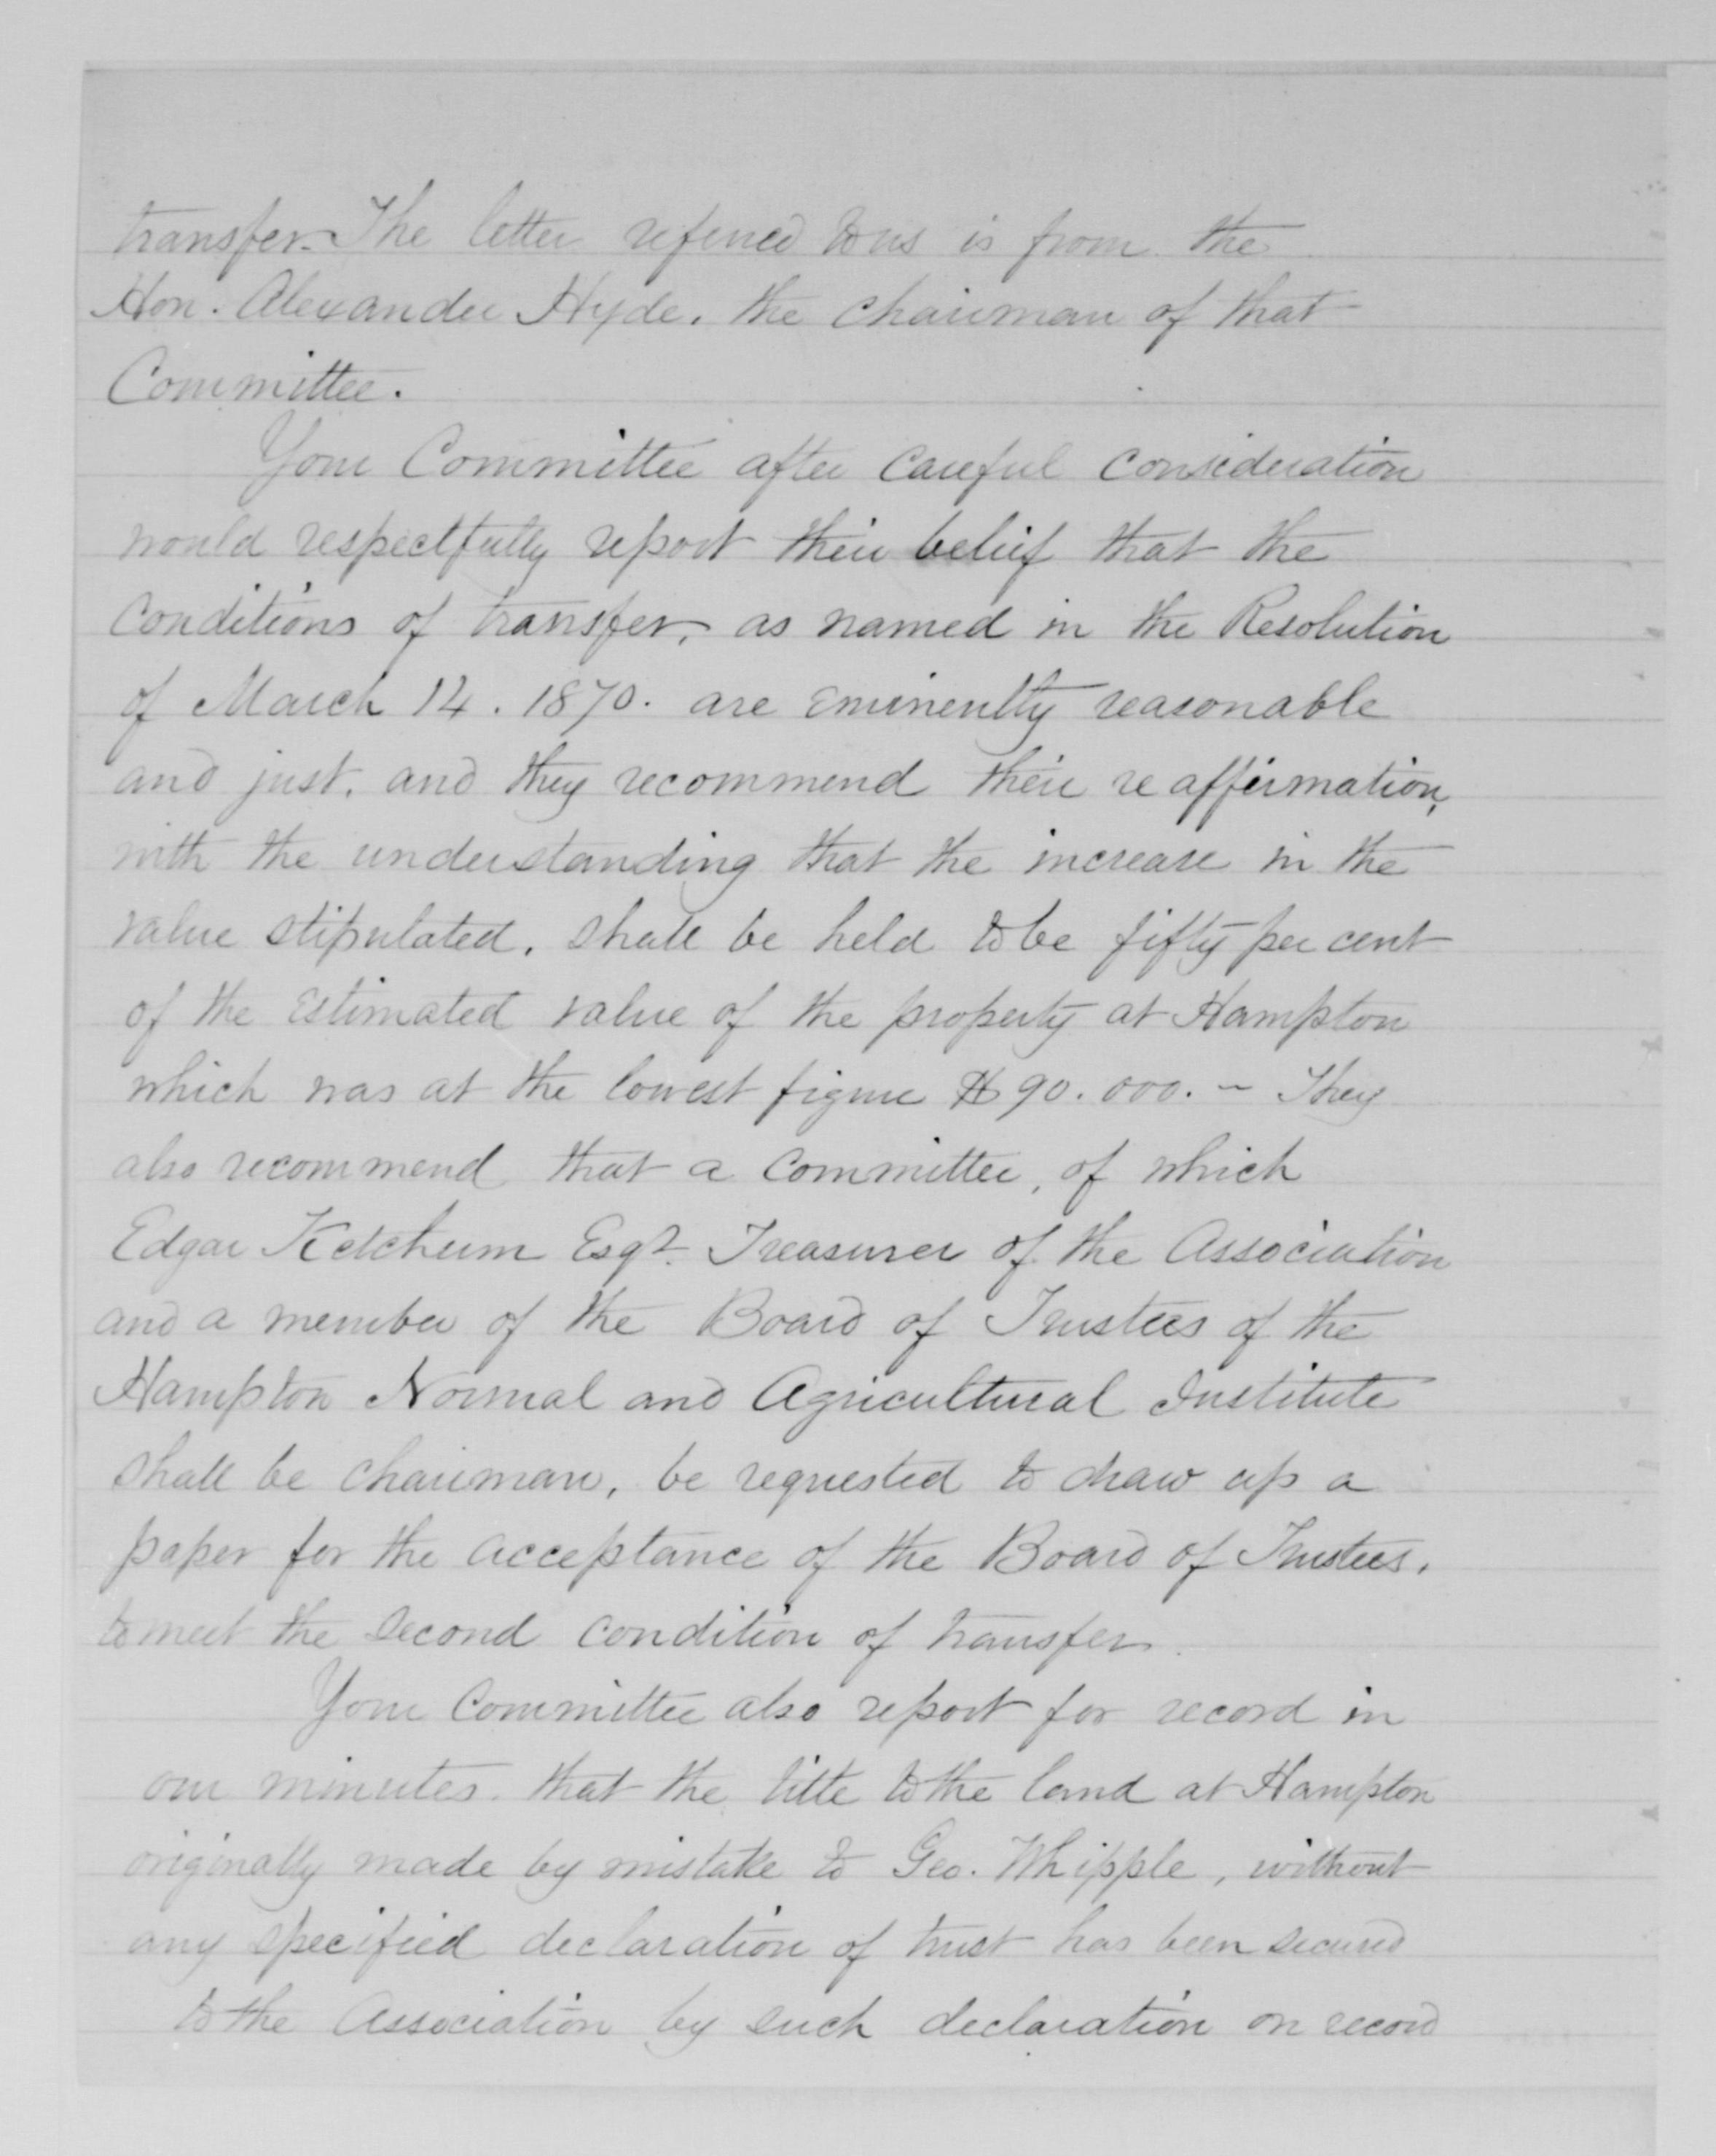 transfer. The letter referred to us is from the
Hon. Alexander Hyde, the chairman of that
Committee.
Your Committee after careful consideration
would respectfully report their belief that the
conditions of transfer, as named in the Resolution
of March 14. 1870. are eminently reasonable
and just, and they recommend their reaffirmation,
with the understanding that the increase in the
value stipulated, shall be held to be fifty per cent
of the estimated value of the property at Hampton
which was at the lowest figure $90.000. - They
also recommend that a committee, of which
Edgar Ketchum Esqr. Treasurer of the Association
and a member of the Board of Trustees of the
Hampton Normal and Agricultural Institute
shall be chairman, be requested to draw up a
paper for the acceptance of the Board of Trustees,
to meet the second condition of transfer.
Your Committee also report for record in
our minutes that the title to the land at Hampton
originally made by mistake to Geo. Whipple, without
any specified declaration of trust has been secured
to the Association by such declaration on record